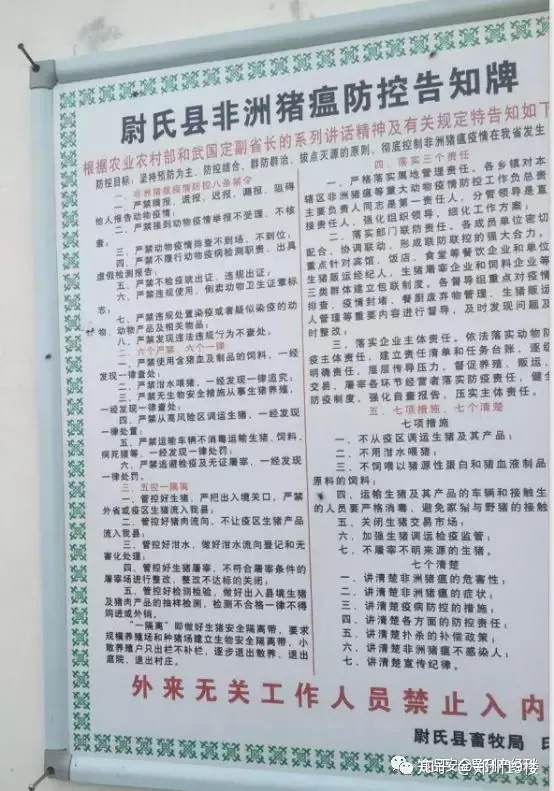 尉氏县非洲猪瘟防控告知牌
根据农业农村部和武国定副省长的系列讲话精神及有关规定特告知如下
防控目标：坚持预防为主、防控结合、群防群治、拔点灭源的原则，彻底控制非洲猪瘟疫情在我省发生
一、非洲猪瘟疫情防控八条禁令
一、严禁瞒报、谎报、迟报、漏报、阻碍
他人报告动物疫情；
二、严禁接到动物疫情举报不受理、不核
查；
三、严禁动物疫情排查不到场、不到位；
四、严禁不履行动物疫病检测职责、出具
虚假检测报告；
五、严禁不检疫就出证、违规出证；
六、严禁违规使用、倒卖动物卫生证章标
志；
七、严禁违规处置染疫或者疑似染疫的动
物、动物产品及相关物品；
八、严禁发现违法违规行为不查处。
二、六个严禁 六个一律
一、严禁使用含猪血及制品的饲料，一经
发现一律查处；
二、严禁泔水喂猪，一经发现一律追究；
三、严禁无生物安全措施从事生猪养殖，
一经发现一律查处；
四、严禁从高风险区调运生猪，一经发现
一律处置；
五、严禁运输车辆不消毒运输生猪、饲料、
病死猪等，一经发现一律处罚；
六、严禁逃避检疫及无证屠宰，一经发现
一律处罚。
三、五控一隔离
一、管控好生猪，严把出入境关口，严禁
外省或疫区生猪流入我县；
二、管控好猪肉流向，不让疫区生猪产品
流入我县；
三、管控好泔水，做好泔水流向登记和无
害化处理；
四、管控好生猪屠宰，不符合屠宰条件的
屠宰场进行整改，整改不达标的关闭；
五、管控好检测检验，做好出入县境生猪
及猪肉产品的抽样检测，检测不合格一律不得
调进或外销。
“一隔离”即做好生猪安全隔离带，要求
规模养殖场和种猪场建立生物安全隔离带，小
散养殖户只出栏不补栏，逐步退出散养、退出
庭院、退出村庄。
四、落实三个责任
一、严格落实属地管理责任。各乡镇对本
辖区非洲猪瘟等重大动物疫情防控工作负总责
主要负责人同志是第一责任人，分管领导是直
接责任人，强化组织领导，细化工作方案；
二、落实部门联防责任。各成员单位密切
配合、协调联动，形成联防联控的强大合力。
重点针对宾馆、饭店、食堂等餐饮企业和单位
生猪贩运经纪人、生猪屠宰企业和饲料企业等
三类群体建立包联制度。各督导组重点对疫情
排查、疫情封堵、餐厨废弃物管理、生猪贩运
人管理等重要内容进行督导，及时发现问题及
时整改；
三、落实企业主体责任。依法落实动物防
疫主体责任，建立责任清单和任务台账，逐级
明确责任，层层传导压力，督促养殖、贩运、
交易、屠宰各环节经营者落实防疫责任，健全
防疫制度，强化自查报告，压实主体责任。
五、七项措施、七个清楚
七项措施
一、不从疫区调运生猪及其产品；
二、不用泔水喂猪；
三、不饲喂以猪源性蛋白和猪血液制品
原料的饲料；
四、运输生猪及其产品的车辆和接触生
的人员要严格消毒，避免家猪与野猪的接触
五、关闭生猪交易市场；
六、加强生猪调运检疫监管；
七、不屠宰不明来源的生猪。
七个清楚
一、讲清楚非洲猪瘟的危害性；
二、讲清楚非洲猪瘟的症状；
三、讲清楚疫病防控的措施；
四、讲清楚各方面的防控责任；
五、讲清楚扑杀的补偿政策；
六、讲清楚非洲猪瘟不感染人；
七、讲清楚宣传纪律。
外来无关工作人员禁止入内
尉氏县畜牧局